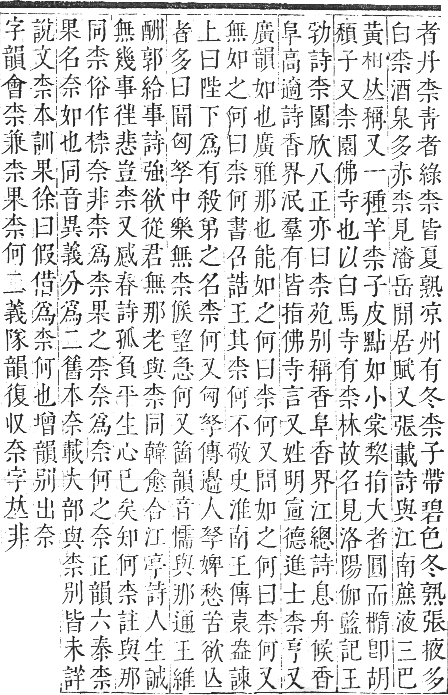 者丹柰青者綠柰皆夏熟凉州有冬柰子帶碧色冬熟張掖多
白柰酒泉多赤柰見潘岳閒居賦又張載詩與江南蔗液三巴
黃柑𠀤稱又一種羊柰子皮點如小棠棃指大者圓而橢卽胡
頹子又柰園佛寺也以白馬寺有柰林故名見洛陽伽藍記王
勃詩柰園欣八正亦曰柰苑别稱香阜香界江總詩息舟候香
阜高適詩香界泯羣有皆指佛寺言又姓明宣德進士柰亨又
廣韻如也廣雅那也能如之何曰柰何又問如之何曰柰何又
無如之何曰柰何書召誥王其柰何不敬史淮南王傳袁盎諫
上曰陛下爲有殺弟之名柰何又匈孥傳邊人孥婢愁苦欲亾
者多曰聞匈孥中樂無柰候望急何又箇韻音懦與那通王維
酬郭給事詩強欲從君無那老與柰同韓愈合江亭詩人生誠
無幾事往悲豈柰又感春詩孤負平生心已矣知何柰註與那
同柰俗作㮏奈非柰爲柰果之柰奈爲奈何之奈正韻六泰柰
果名奈如也同音異義分爲二舊本奈載大部與柰別皆未詳
說文柰本訓果徐曰假借爲柰何也增韻别出奈
字韻會柰兼柰果柰何二義隊韻復収奈字𠀤非